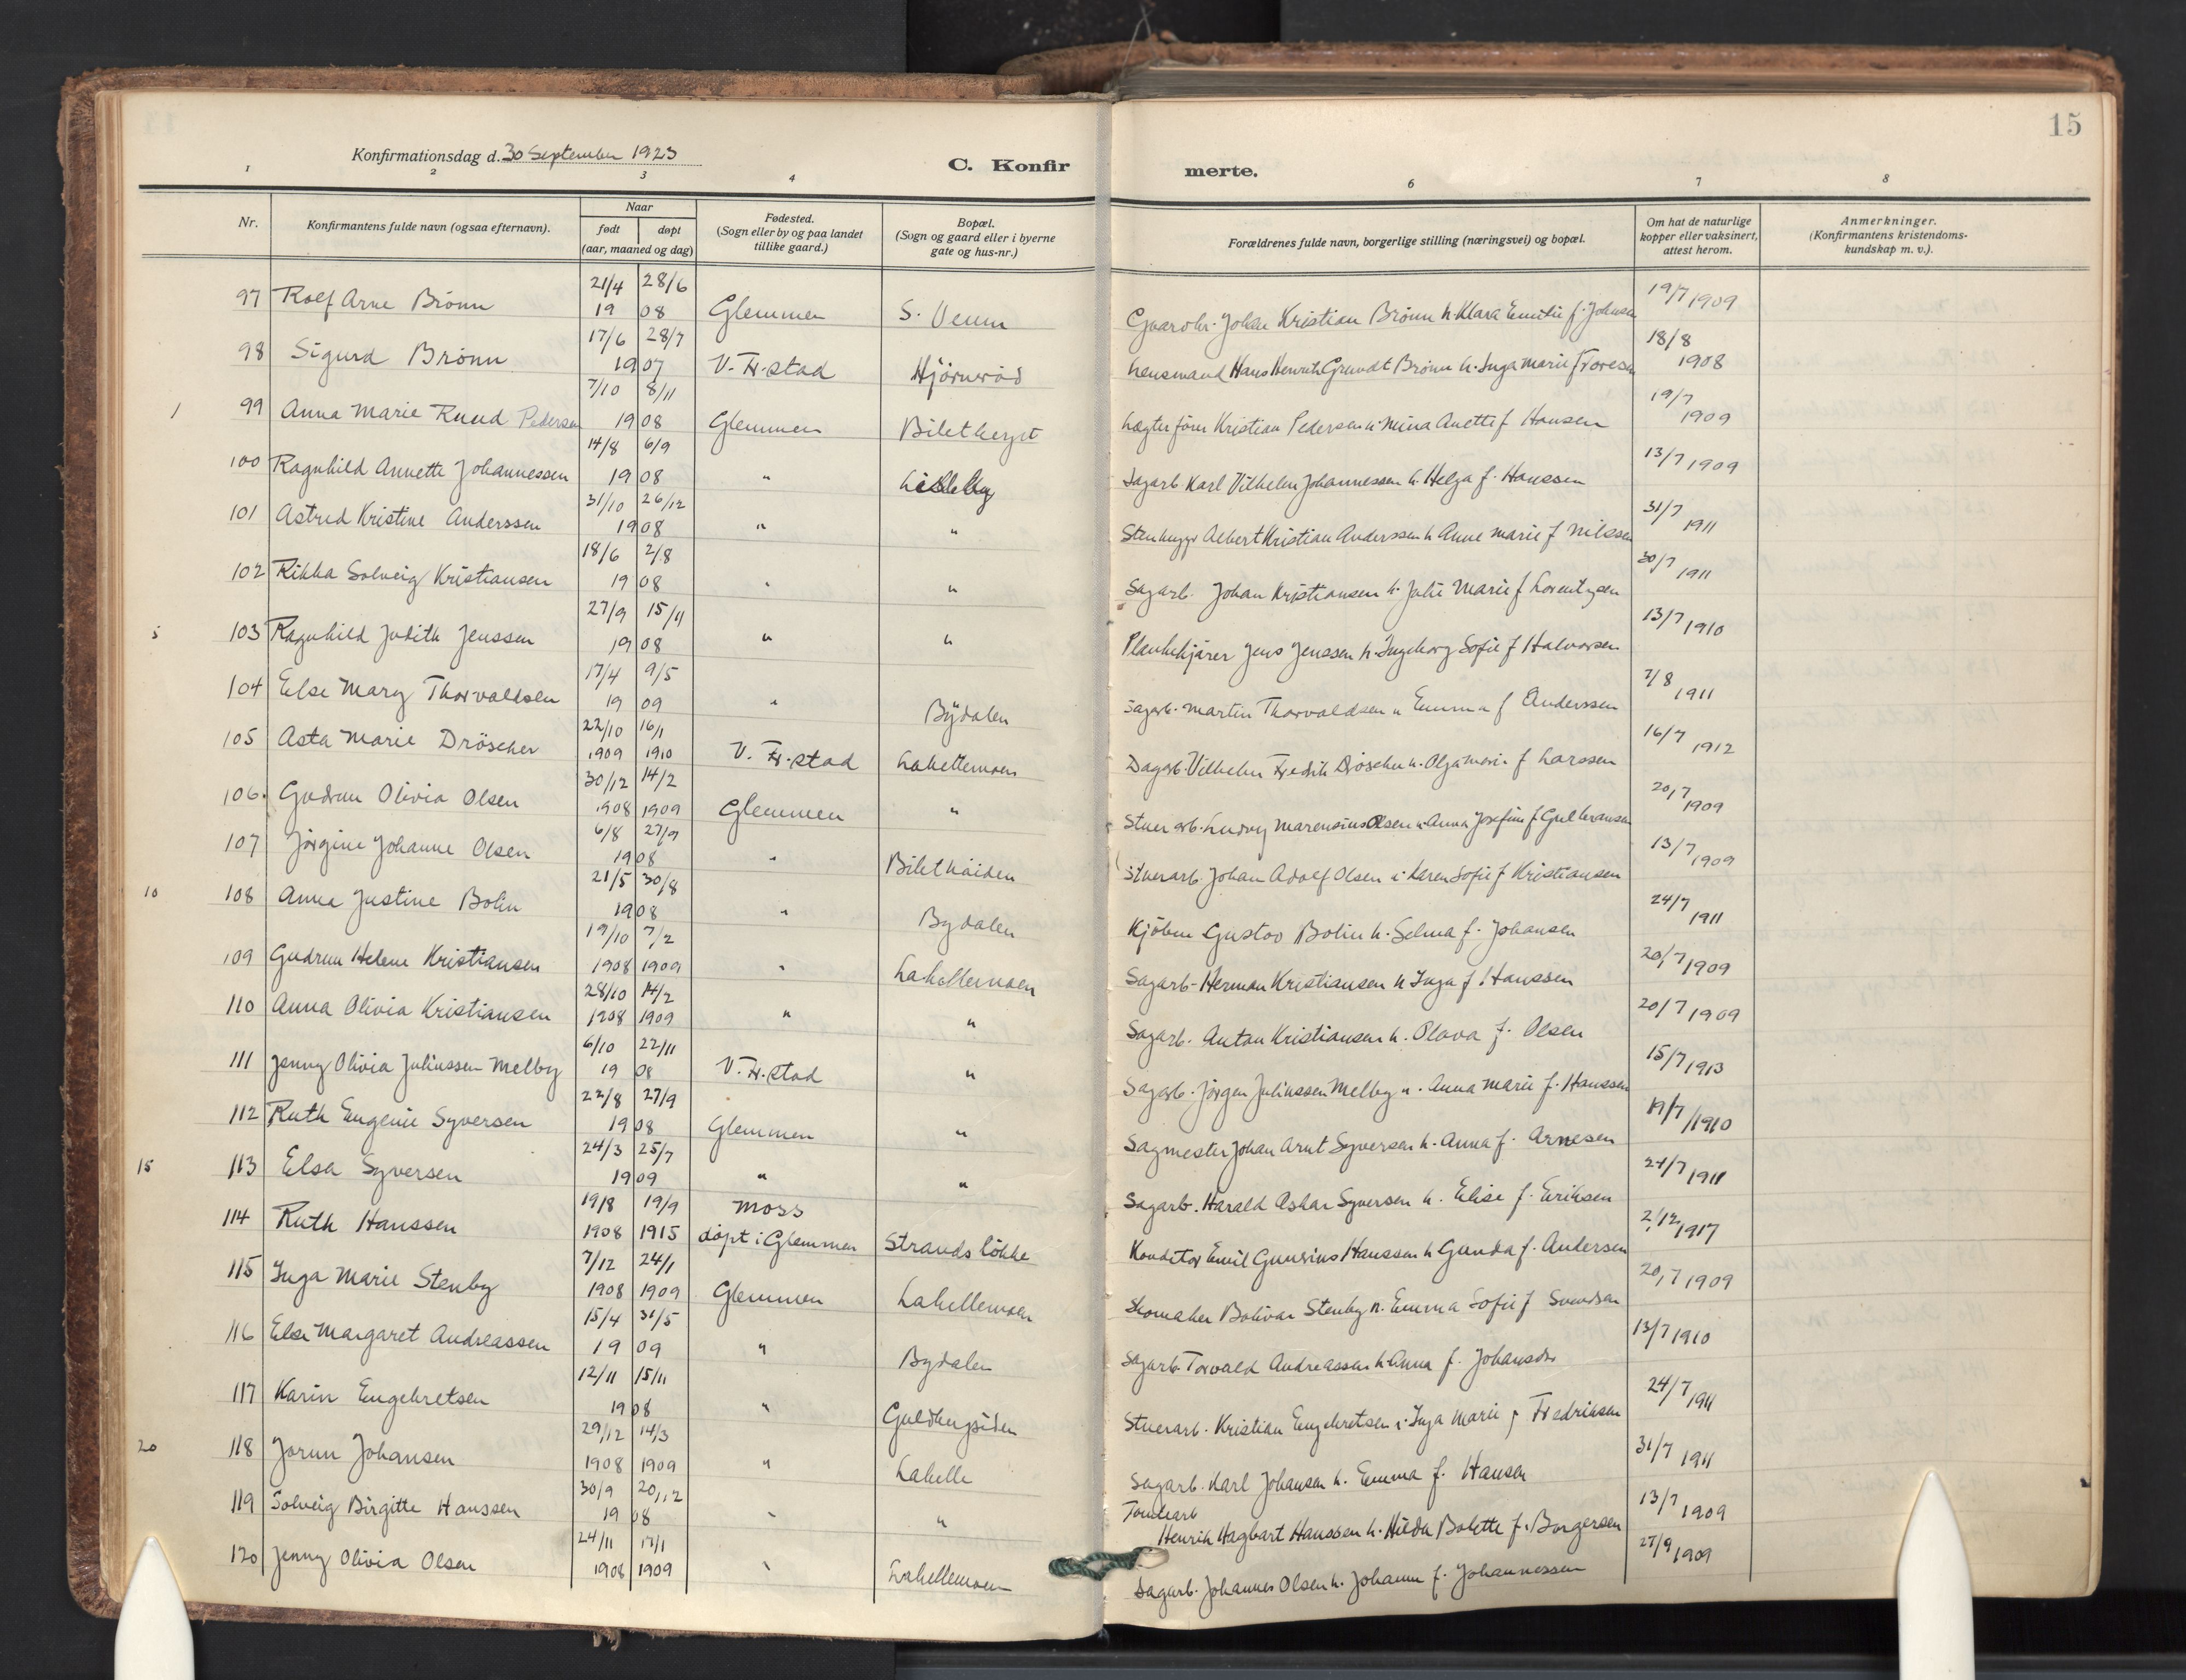 15
Konfirmationsdag d. 30 September 1923
C. Konfirmerte.
1 2 3 4 6 7 8
Nr. Konfirmantens fulde navn (ogsaa efternavn). Naar født døpt (aar, maaned og dag) Fødested. (Sogn eller by og paa landet tillike gaard.) Bopæl. (Sogn og gaard eller i byerne gate og hus-nr.) Forældrenes fulde navn, borgerlige stilling (næringsvei) og bopæl. Om hat de naturlige kopper eller vaksinert, attest herom. Anmerkninger. (Konfirmantens kristendoms-kundskap m. v.).
97 Rolf Arne Brönn 21/4 28/6 1908 Glemmen S. Veum Gaardbr. Johan Kristian Brönn h. Klara Emilie f. Johansen 19/7 1909
98 Sigurd Brönn 17/6 28/7 1907 V. Fr.stad Hjörneröd Lensmand Hans Henrik Grundt Brönn h. Inga Marie f. Toresen 18/8 1908
1 99 Anna Marie Ruud Pedersen 7/10 8/11 1908 Glemmen Biletberget Lægterförer Kristian Pedersen h. Mina Anette f Hansen 19/7 1909
100 Ragnhild Annette Johannessen 14/8 6/9 1908 " Lisleby Sagarb. Karl Vilhelm Johannessen h. Helga f. Hanssen 13/7 1909
101 Astrid Kristine Anderssen 31/10 26/12 1908 " " Stenhugger Albert Kristian Anderssen h Anne Marie f Nilssen 31/7 1911
102 Rikka Solveig Kristiansen 18/6 2/8 1908 " " Sagarb. Johan Kristiansen h. Julie Marie f Lorentzen 30/7 1911
5 103 Ragnhild Judith Jenssen 27/9 15/11 1908 " " Plankekjører Jens Jenssen h. Ingeborg Sofie f Halvorsen 13/7 1910
104 Else Mary Thorvaldsen 17/4 9/5 1909 " Bydalen Sagarb. Martin Thorvaldsen h Emma f Anderssen 7/8 1911
105 Asta Marie Dröscher 22/10 16/1 1909 1910 V. Fr.stad Lahellemoen Dagarb. Vilhelm Fredrik Dröscher h. Olga Marie f Larssen 16/7 1912
106. Gudrun Olivia Olsen 30/12 14/2 1908 1909 Glemmen " Stuerarb. Ludvig Marensius Olsen h. Anna Josefine f Gulbransen 20/7 1909
107 Jörgine Johanne Olsen 6/8 27/9 1908 " Bilethöiden Stuerarb. Johan Adolf Olsen h. Karen Sofie f Kristiansen 13/7 1909
10 108 Anna Justine Bolin 21/5 30/8 1908 " Bydalen Kjöbm Gustav Bolin h. Selma f. Johansen 24/7 1911
109 Gudrun Helene Kristiansen 19/10 7/2 1908 1909 " Lahellemoen Sagarb. Herman Kristiansen h Inga f. Hanssen 20/7 1909
110 Anna Olivia Kristiansen 28/10 14/2 1908 1909 " " Sagarb. Anton Kristiansen h. Olava f. Olsen 20/7 1909
111 Jenny Olivia Juliussen Melby 6/10 22/11 1908 V. Fr.stad " Sagarb. Jörgen Juliussen Melby h. Anna Marie f. Hanssen 15/7 1913
112 Ruth Eugenie Syversen 22/8 27/9 1908 Glemmen " Sagmester Johan Arnt Syversen h. Anna f. Arnesen 19/7 1910
15 113 Elsa Syversen 24/3 25/7 1909 " " Sagarb. Harald Oskar Syversen h. Elise f. Eriksen 24/7 1911
114 Ruth Hanssen 19/8 19/9 1908 1915 Moss döpt i Glemmen Strandslökke Konditor Emil Gunerius Hanssen h Gunda f. Andersen 2/12 1917
115 Inga Marie Stenby 7/12 24/1 1908 1909 Glemmen Lahellemoen Skomaker Bolivar Stenby h. Emma Sofie f Svendsen 20/7 1909
116 Else Margaret Andreassen 15/4 31/5 1909 " Bydalen Sagarb. Torvald Andreassen h. Anna f. Johansdr 13/7 1910
117 Karin Engebretsen 12/11 15/11 1908 " Guldbergsiden Stuerarb. Kristian Engebretsen h. Inga Marie f Fredriksen 24/7 1911
20 118 Jorun Johansen 29/12 14/3 1908 1909 " Lahelle Sagarb. Karl Johansen h. Emma f. Hansen 31/7 1911
119 Solveig Birgitte Hanssen 30/9 20/12 1908 " " Tomtearb Henrik Hagbart Hanssen h. Hilda Bolette f. Borgersen 13/7 1909
120 Jenny Olivia Olsen 24/11 17/1 1908 1909 " Lahellemoen Sagarb. Johannes Olsen h. Johanne f. Johannessen 27/9 1909